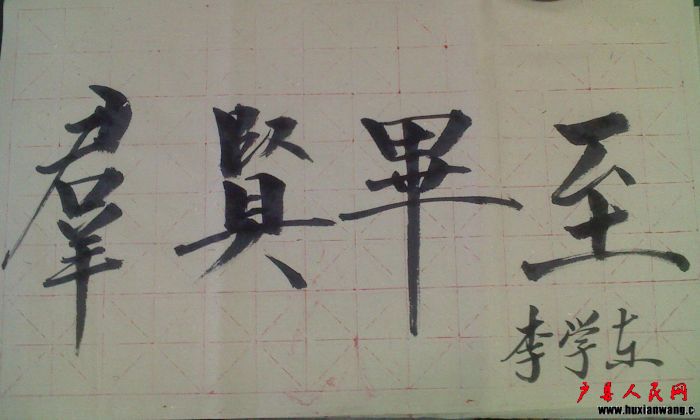 羣賢畢至
李学东
户县人民网
www.huxianwang.c